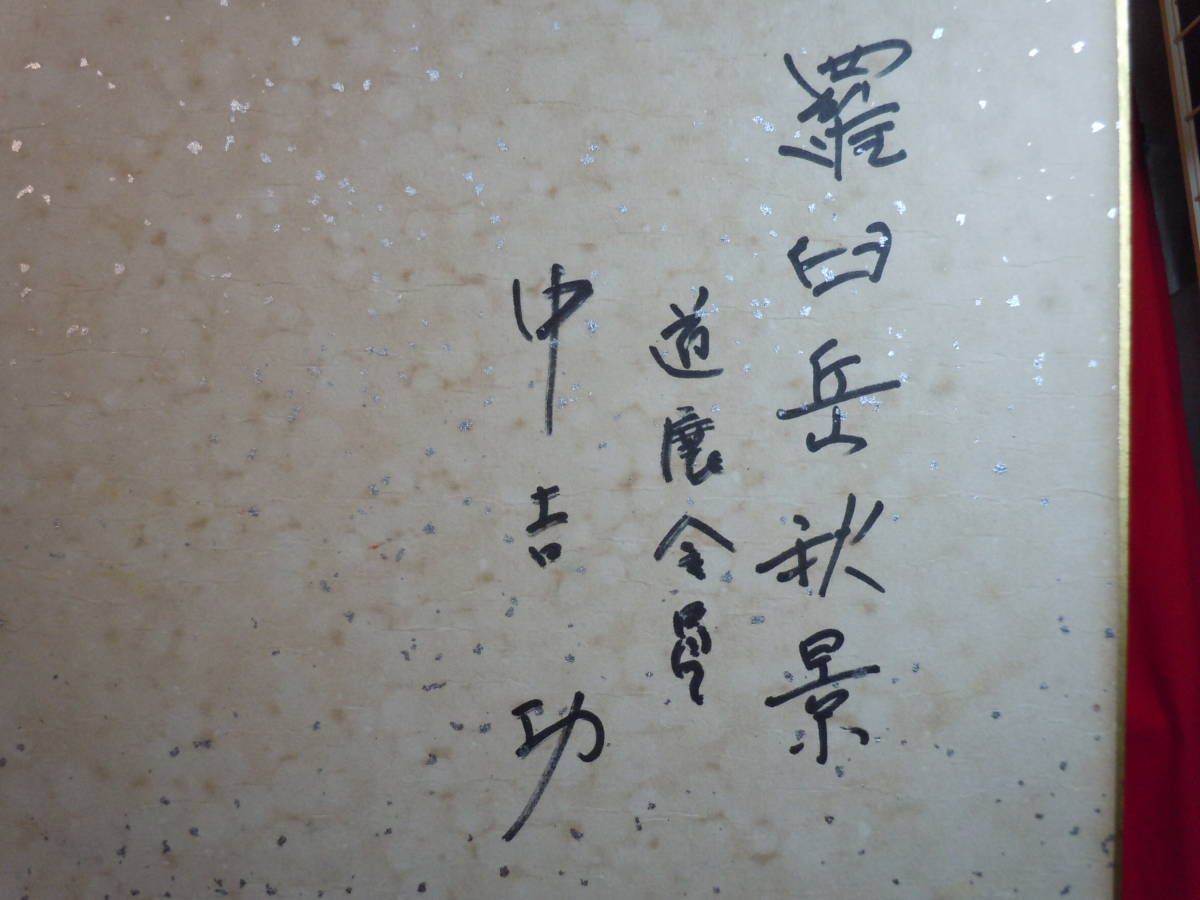 羅臼岳秋景
道展会員
中吉功